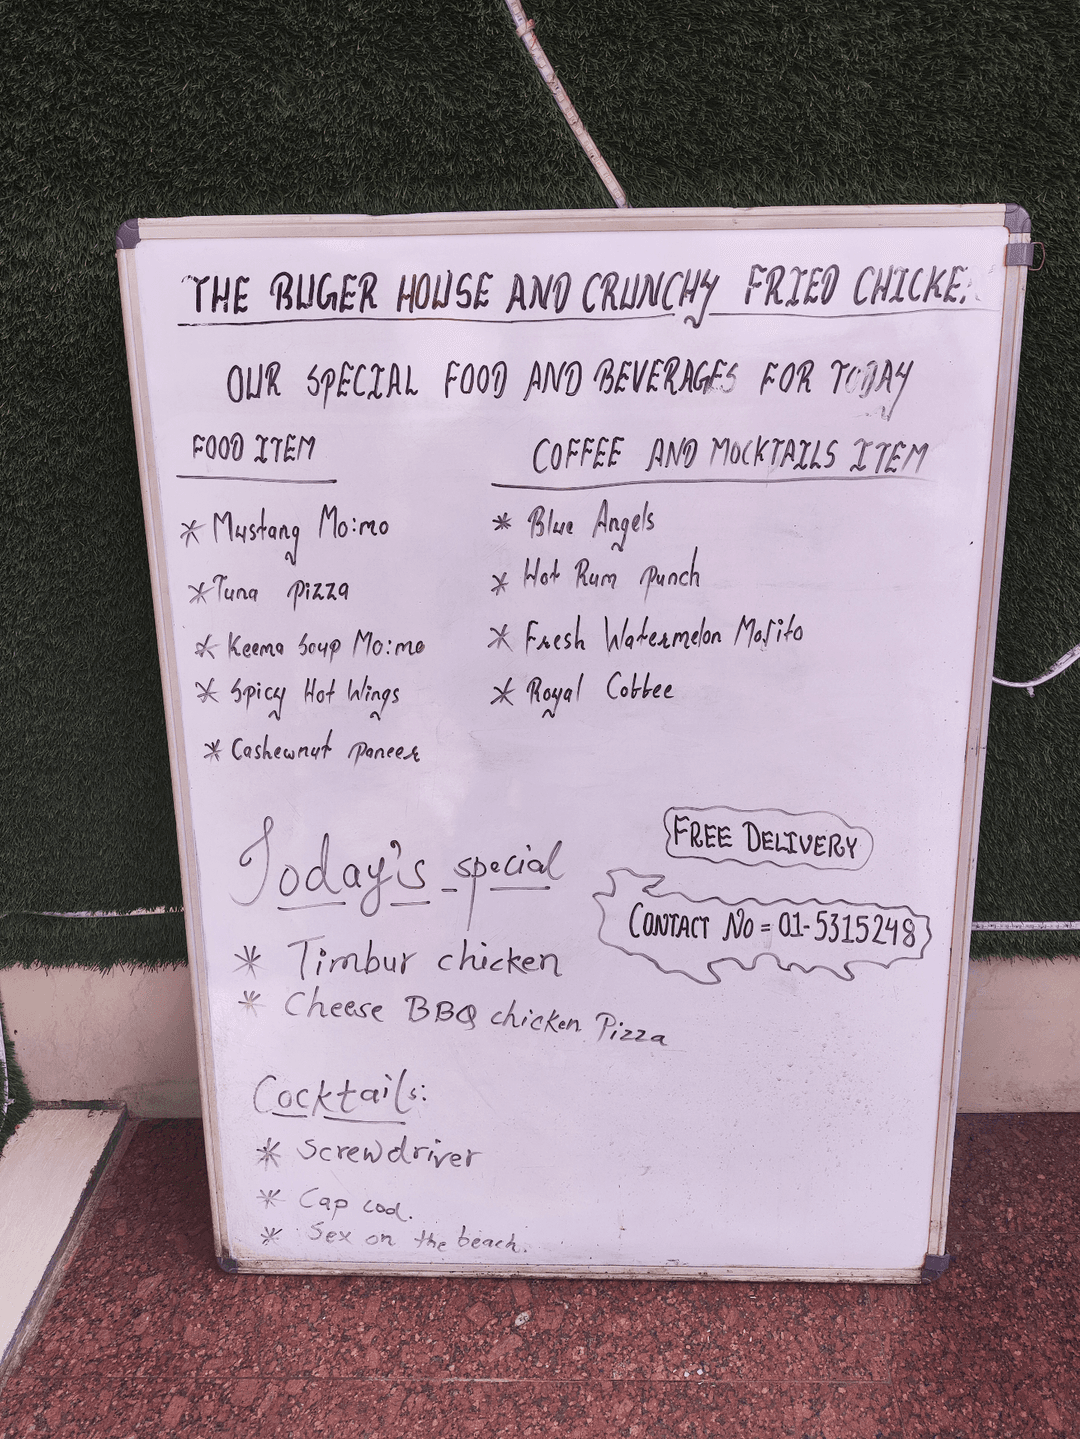 THE BUGER HOUSE AND CRUNCHY FRIED CHICKE
OUR SPECIAL FOOD AND BEVERAGES FOR TODAY
FOOD ITEM
* Mustang Mo:mo
* Tuna Pizza
* Keema Soup Mo:mo
* Spicy Hot Wings
* Cashewnut Paneer
COFFEE AND MOCKTAILS ITEM
* Blue Angels
* Hot Rum Punch
* Fresh Watermelon Mojito
* Royal Coffee
Today's special
* Timbur chicken
* Cheese BBQ chicken Pizza
FREE DELIVERY
CONTACT NO = 01-5315248
Cocktails:
* Screwdriver
* Cap cod.
* Sex on the beach.